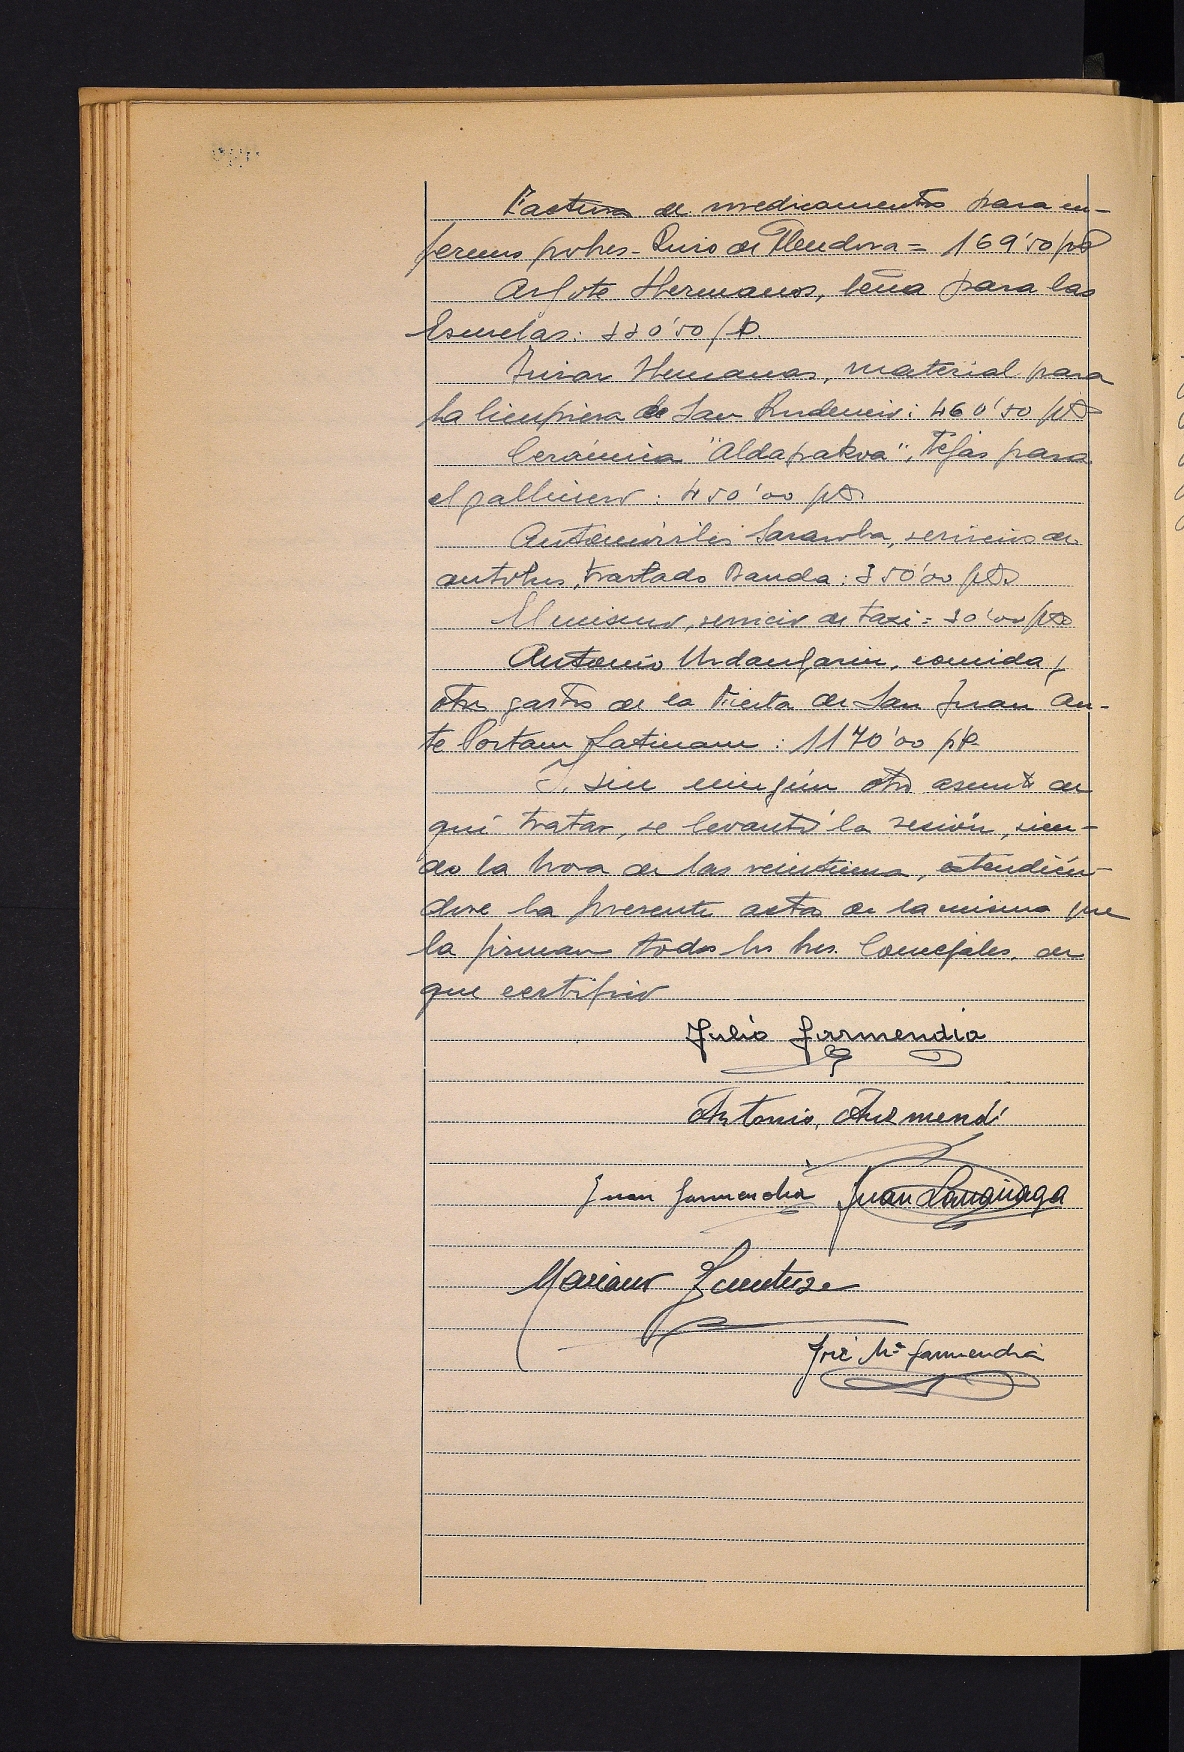 Factura de medicamentos para en-
fermos pobres - Ruiz de Mendoza = 169'50 pts
Argote Hermanos, leña para las
Escuelas: 330'50 pts.
Hermanas, material para
la limpieza de San Prudencio: 460'50 pts
Cerámica "Aldapakoa", tejas para
el gallinero: 450'00 pts
Automóviles Sarasola, servicios de
autobus, traslado Banda: 350'00 pts.
El mismo, servicio de taxi = 30'00 pts
Antonio Urdangarin, comida y
otros gastos de la Fiesta de San Juan An-
te Portam Latinam: 1170'00 pts.
Y, sin ningún otro asunto de
qué tratar, se levantó la sesión, sien-
do la hora de las veintiuna, extendién-
dose la presente acta de la misma que
la firman todos los Sres. Concejales, de
que certifico
Julio Garmendia
Antonio Aizmendi
Juan Garmendia Juan
Mariano
José Mª Garmendia